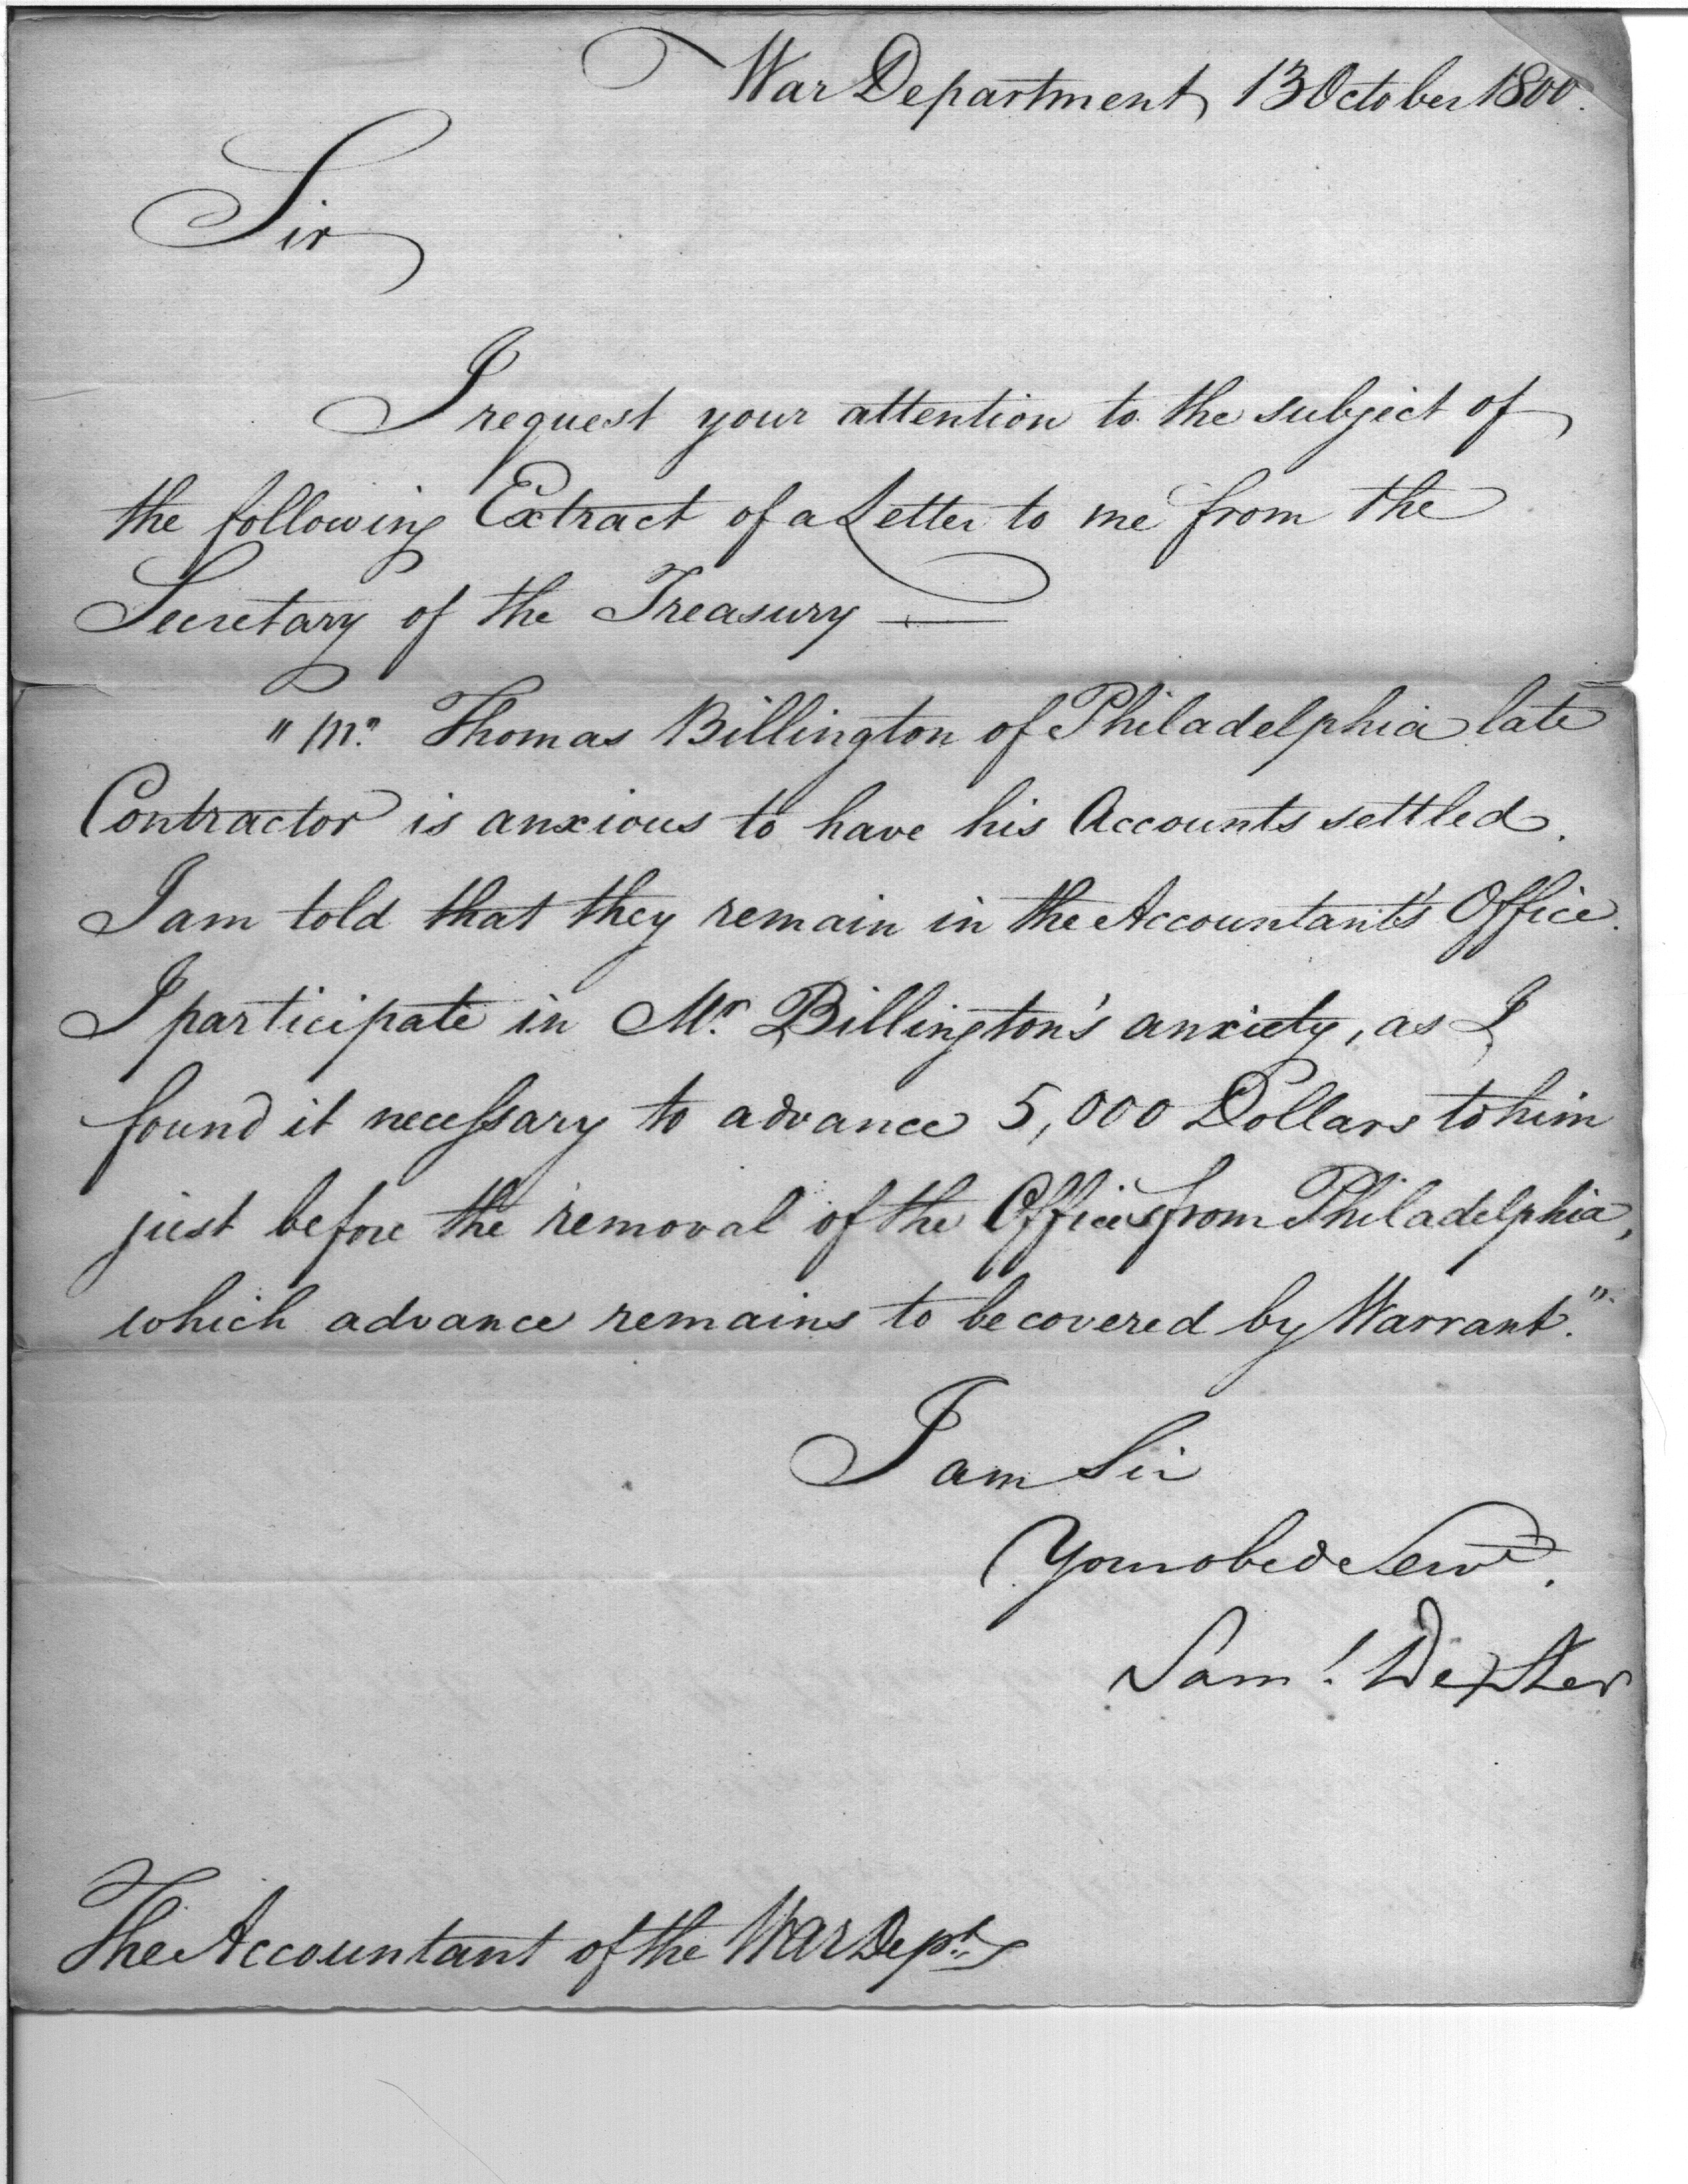 War Department 13 October 1800.
Sir
I request your attention to the subject of
the following Extract of a Letter to me from the
Secretary of the Treasury —
"Mr. Thomas Billington of Philadelphia late
Contractor is anxious to have his Accounts settled.
I am told that they remain in the Accountant's Office.
I participate in Mr. Billington's anxiety, as I
found it necessary to advance 5,000 Dollars to him
just before the removal of the Offices from Philadelphia,
which advance remains to be covered by Warrant."
I am Sir
Your obed Servt.
Saml. Dexter
The Accountant of the War Dept.